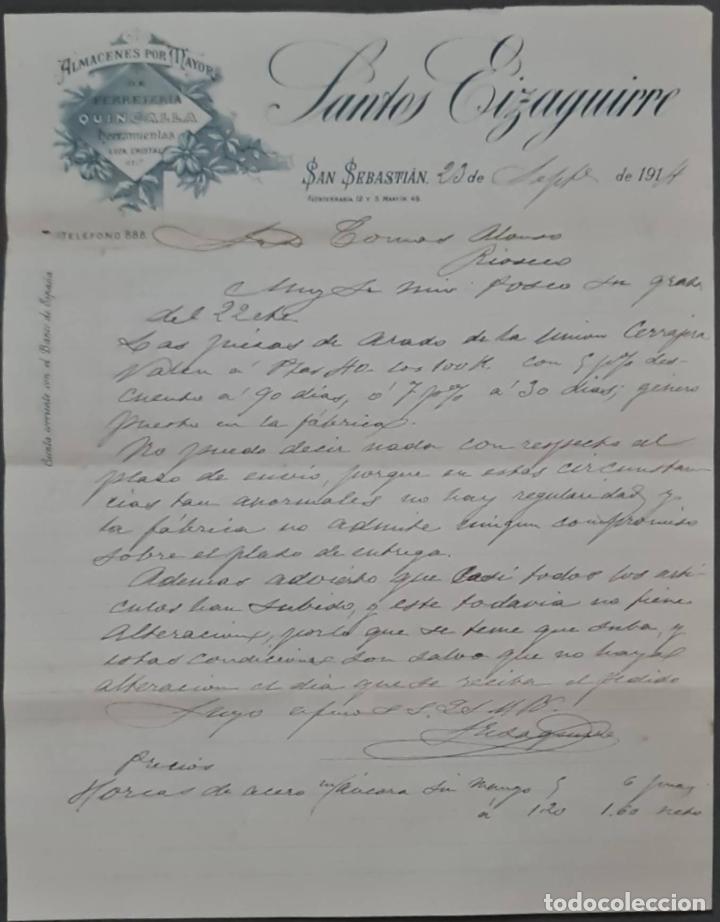 ALMACENES POR MAYOR
DE
FERRETERÍA
QUINCALLA
Herramientas
LOZA, CRISTAL
ETC.
Santos Eizaguirre
SAN SEBASTIÁN, 23 de Sepbre de 1914
FUENTERRABIA 12 Y S. MARTIN 45
TELÉFONO 888
Cuenta corriente con el Banco de España
Tomas Alonso
Rioseco
Muy Sr mio: Poseo su grata
del 22 cte.
Las piezas de arado de la Union Cerrajera
Valen á Ptas 40. los 100 K. con 5 p% des-
cuento á 90 dias, ó 7 p% á 30 dias; género
puesto en la fábrica.
No puedo decir nada con respecto al
plazo de envio, porque en estas circunstan
cias tan anormales no hay regularidad y
la fábrica no admite ningun compromiso
sobre el plazo de entrega.
Ademas advierto que casi todos los arti-
culos han subido, y este todavia no tiene
alteracion, por lo que se teme que suba, y
estas condiciones son salvo que no haya
alteracion el dia que se reciba el pedido
Suyo afmo S. S. Q. S. M. B.
S Eizaguirre
Precios
Horcas de acero sin mango 5 6 puas
á 1.20 1.60 neto
todocoleccion